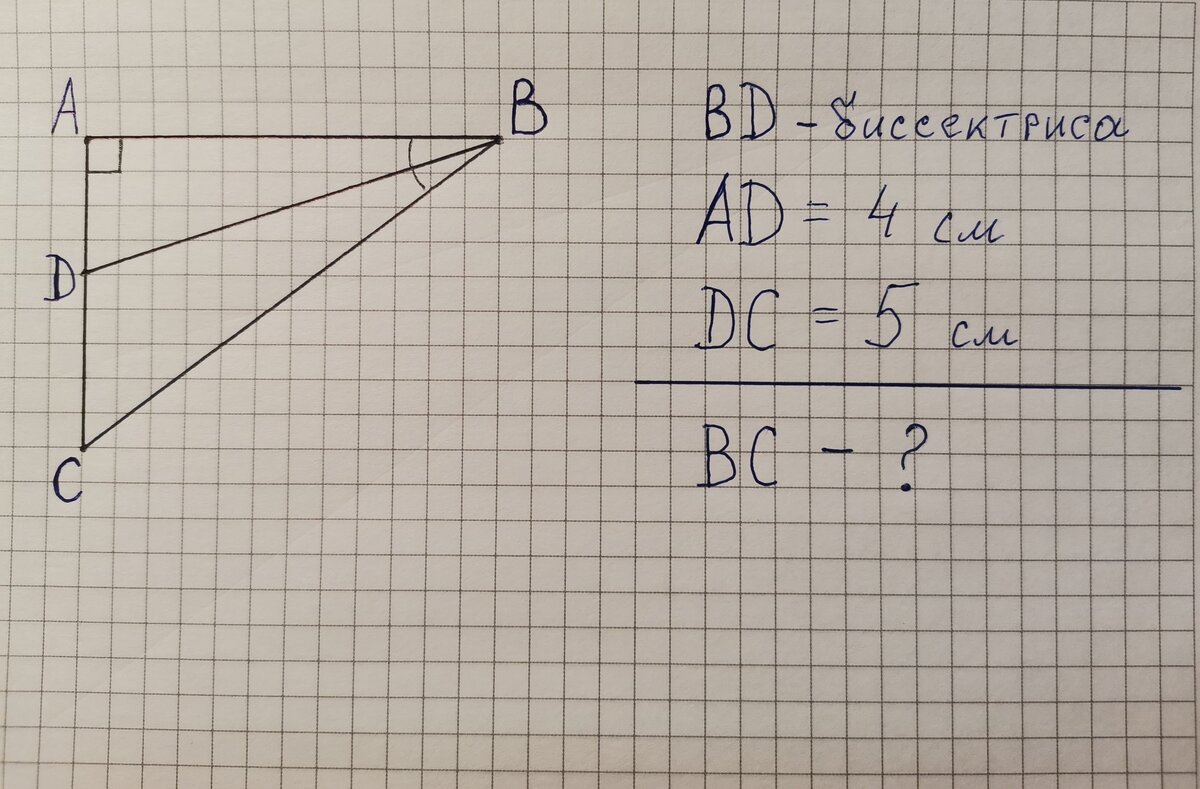 A
B
D
C
BD - биссектриса
AD = 4 см
DC = 5 см
BC - ?